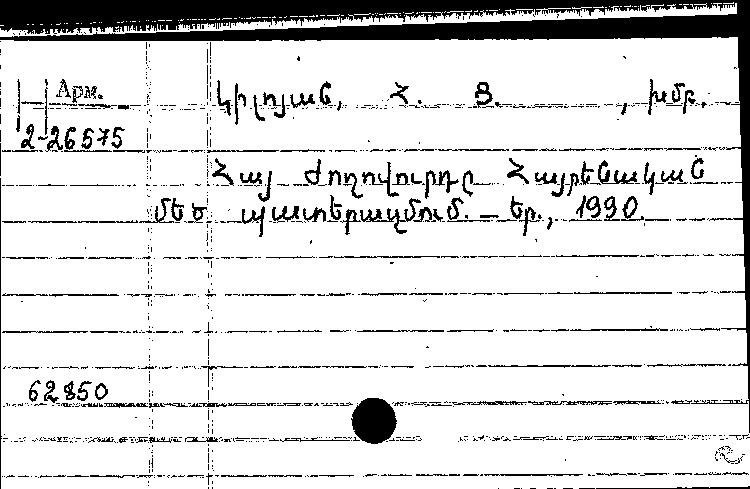 Арм.
Կիլոյան, Հ. Ց. , խմբ.
2-26575
Հայ ժողովուրդը Հայրենական
մեծ պատերազմում. — Եր., 1990.
62850